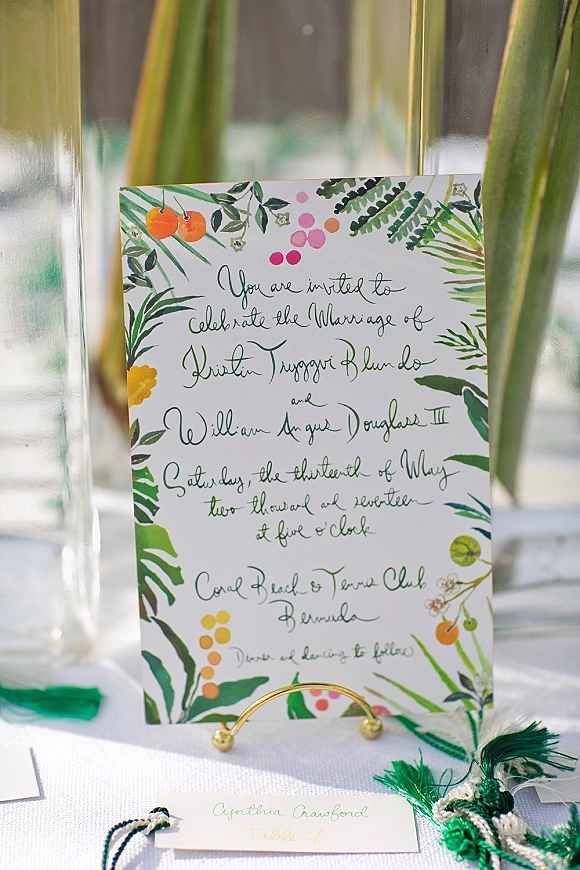 You are invited to
celebrate the Marriage of
Kristin Tryggvi Blundo
and
William Angus Douglass III
Saturday, the thirteenth of May
two thousand and seventeen
at five o'clock
Coral Beach & Tennis Club
Bermuda
Dinner and dancing to follow
Cynthia Crawford
Table 7